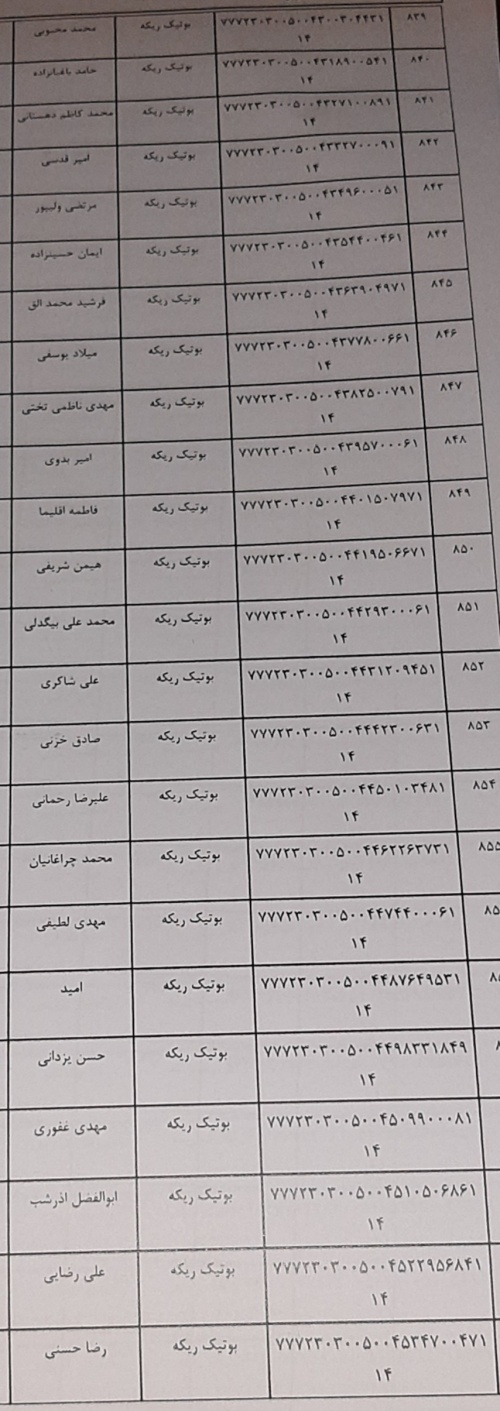 ۸۳۹ ۷۷۷۲۳۰۳۰۰۵۰۰۴۳۰۰۳۰۴۴۳۱ بوتیک ریکه محمد محبوبی
۱۴
۸۴۰ ۷۷۷۲۳۰۳۰۰۵۰۰۴۳۱۸۹۰۰۵۴۱ بوتیک ریکه حامد باغبانزاده
۱۴
۸۴۱ ۷۷۷۲۳۰۳۰۰۵۰۰۴۳۲۷۱۰۰۸۹۱ بوتیک ریکه محمد کاظم دهستانی
۱۴
۸۴۲ ۷۷۷۲۳۰۳۰۰۵۰۰۴۳۳۲۷۰۰۰۹۱ بوتیک ریکه امیر قدسی
۱۴
۸۴۳ ۷۷۷۲۳۰۳۰۰۵۰۰۴۳۴۹۶۰۰۰۵۱ بوتیک ریکه مرتضی ولیپور
۱۴
۸۴۴ ۷۷۷۲۳۰۳۰۰۵۰۰۴۳۵۴۴۰۰۴۶۱ بوتیک ریکه ایمان حسینزاده
۱۴
۸۴۵ ۷۷۷۲۳۰۳۰۰۵۰۰۴۳۶۳۹۰۴۹۷۱ بوتیک ریکه فرشید محمد الق
۱۴
۸۴۶ ۷۷۷۲۳۰۳۰۰۵۰۰۴۳۷۷۸۰۰۶۶۱ بوتیک ریکه میلاد یوسفی
۱۴
۸۴۷ ۷۷۷۲۳۰۳۰۰۵۰۰۴۳۸۲۵۰۰۷۹۱ بوتیک ریکه مهدی ناظمی تختی
۱۴
۸۴۸ ۷۷۷۲۳۰۳۰۰۵۰۰۴۳۹۵۷۰۰۰۶۱ بوتیک ریکه امیر بدوی
۱۴
۸۴۹ ۷۷۷۲۳۰۳۰۰۵۰۰۴۴۰۱۵۰۷۹۷۱ بوتیک ریکه فاطمه اقلیما
۱۴
۸۵۰ ۷۷۷۲۳۰۳۰۰۵۰۰۴۴۱۹۵۰۶۶۷۱ بوتیک ریکه هیمن شریفی
۱۴
۸۵۱ ۷۷۷۲۳۰۳۰۰۵۰۰۴۴۲۹۳۰۰۰۶۱ بوتیک ریکه محمد علی بیگدلی
۱۴
۸۵۲ ۷۷۷۲۳۰۳۰۰۵۰۰۴۴۳۱۲۰۹۴۵۱ بوتیک ریکه علی شاکری
۱۴
۸۵۳ ۷۷۷۲۳۰۳۰۰۵۰۰۴۴۴۲۳۰۰۶۳۱ بوتیک ریکه صادق خزنی
۱۴
۸۵۴ ۷۷۷۲۳۰۳۰۰۵۰۰۴۴۵۰۱۰۳۴۸۱ بوتیک ریکه علیرضا رحمانی
۱۴
۸۵۵ ۷۷۷۲۳۰۳۰۰۵۰۰۴۴۶۲۲۶۳۷۳۱ بوتیک ریکه محمد چراغانیان
۱۴
۸۵ ۷۷۷۲۳۰۳۰۰۵۰۰۴۴۷۴۴۰۰۰۶۱ بوتیک ریکه مهدی لطیفی
۱۴
۷۷۷۲۳۰۳۰۰۵۰۰۴۴۸۷۶۴۹۵۳۱ بوتیک ریکه امید
۱۴
۷۷۷۲۳۰۳۰۰۵۰۰۴۴۹۸۳۳۱۸۴۹ بوتیک ریکه حسن یزدانی
۱۴
۷۷۷۲۳۰۳۰۰۵۰۰۴۵۰۹۹۰۰۰۸۱ بوتیک ریکه مهدی غفوری
۱۴
۷۷۷۲۳۰۳۰۰۵۰۰۴۵۱۰۵۰۶۸۶۱ بوتیک ریکه ابوالفضل اذرشب
۱۴
۷۷۷۲۳۰۳۰۰۵۰۰۴۵۲۲۹۵۶۸۴۱ بوتیک ریکه علی رضایی
۱۴
۷۷۷۲۳۰۳۰۰۵۰۰۴۵۳۴۷۰۰۴۷۱ بوتیک ریکه رضا حسنی
۱۴